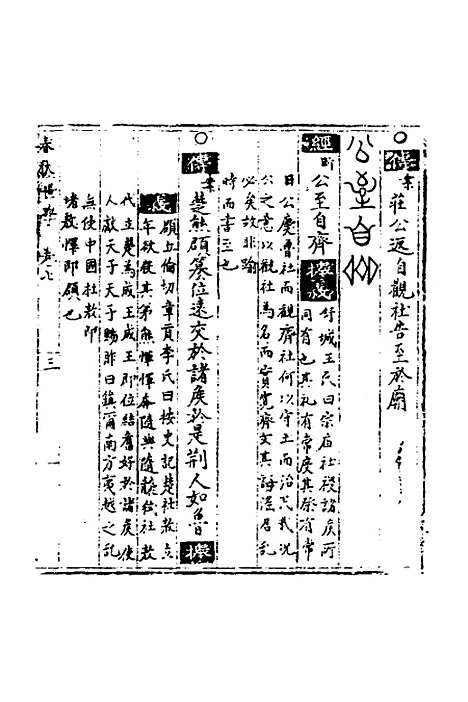 傳 業 莊公返自觀社告至於廟
公至自齊
經 斷 公至自齊 據義 舒城王氏曰宗廟社稷諸侯所
同有也其礼有常度其祭有常
日公慶曹社而觀齊社何以守土而治民哉況
公之意以觀社為名而實覓齊女其誨淫居乱
必矣故非踰
時而書至也
傳 業 楚熊頵篡位遠交於諸侯於是荆人如魯 據
義 頵立倫切章貢李氏曰按史記楚杜敖立
年欲殺其弟熊惲惲奔隨與隨襲弒杜敖
代立是為成王成王即位結舊好於諸侯使
人獻天子天子賜胙曰鎮爾南方夷越之乱
無侵中國杜敖即
堵敖惲即頵也
春秋 卷七 三